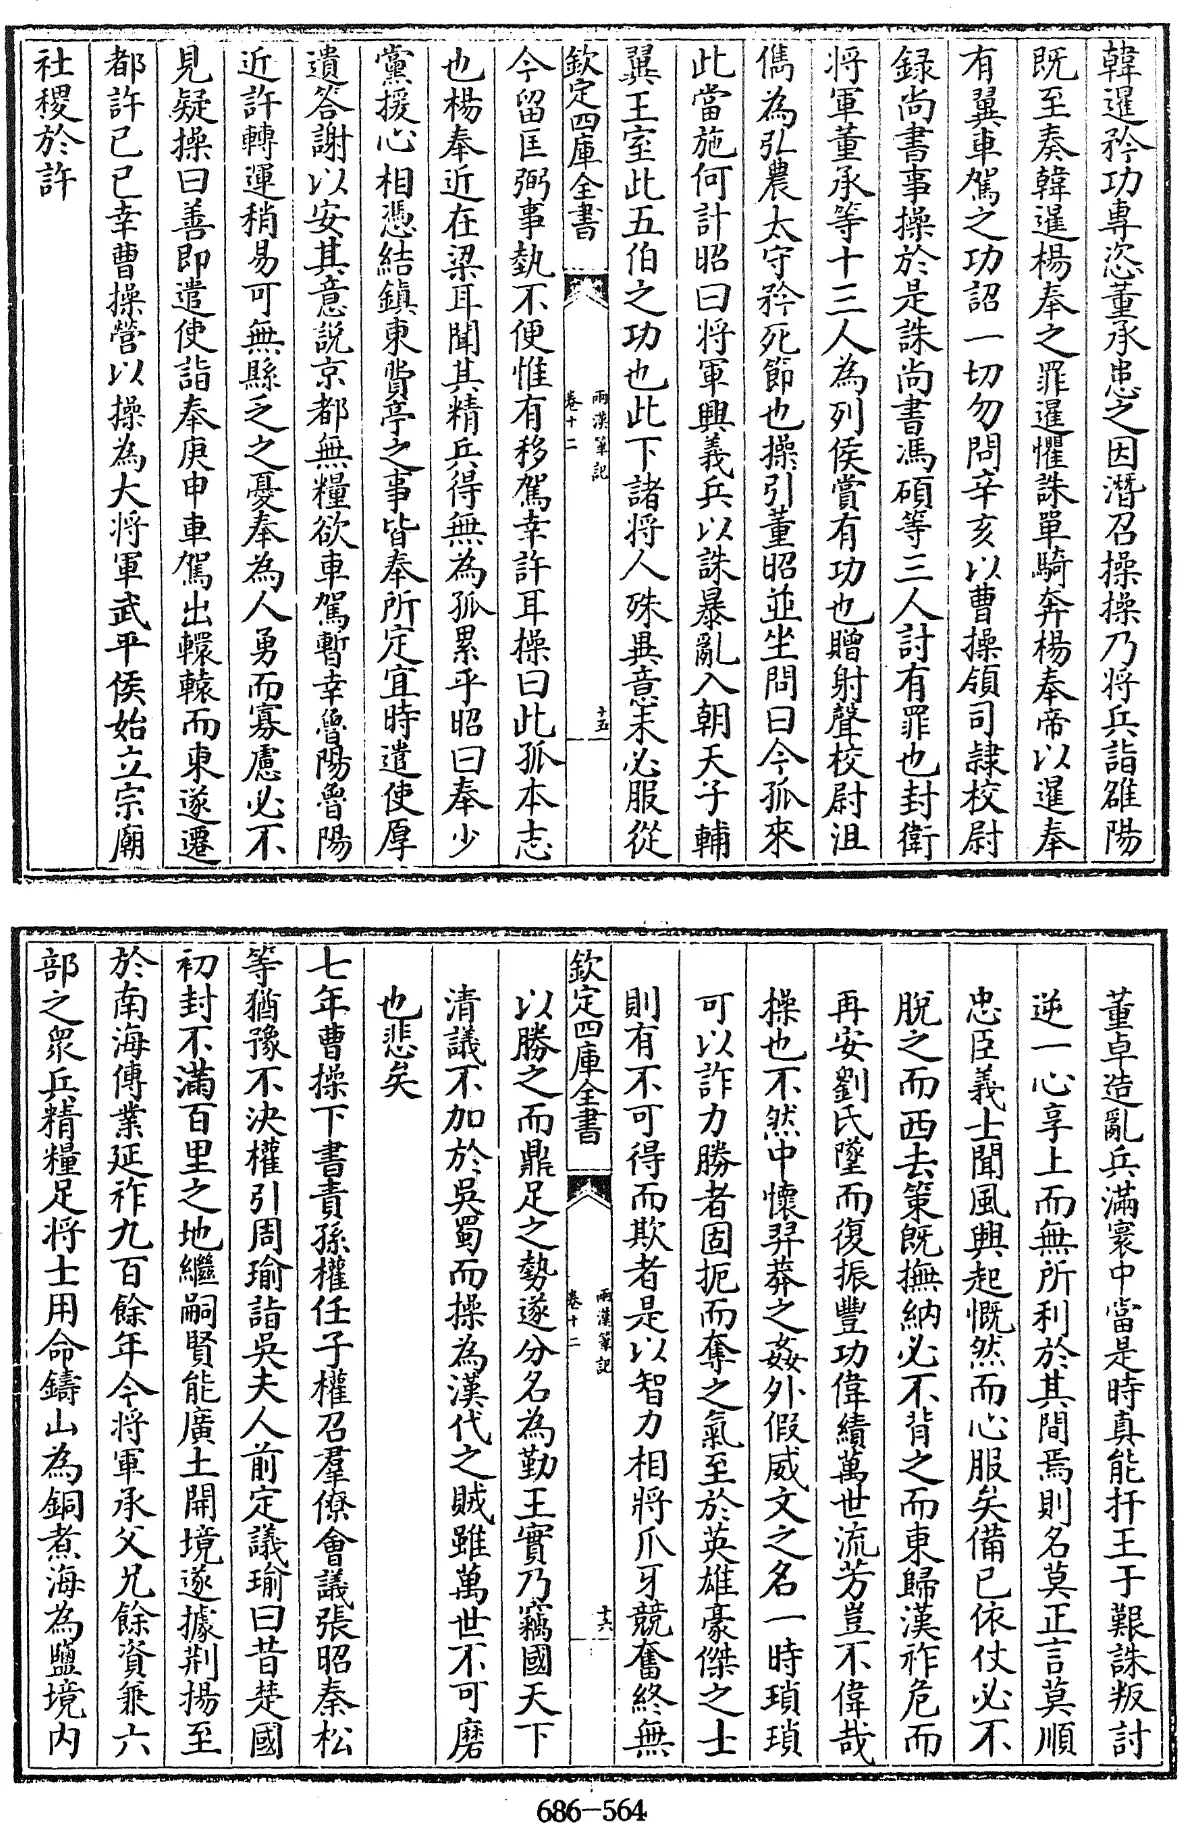 韓暹矜功專恣董承患之因潛召操操乃將兵詣雒陽
既至奏韓暹楊奉之罪暹懼誅單騎奔楊奉帝以暹奉
有翼車駕之功詔一切勿問辛亥以曹操領司隷校尉
録尚書事操於是誅尚書馮碩等三人討有罪也封衛
將軍董承等十三人為列侯賞有功也贈射聲校尉沮
儁為弘農太守矜死節也操引董昭並坐問曰今孤來
此當施何計昭曰將軍興義兵以誅暴亂入朝天子輔
翼王室此五伯之功也此下諸將人殊異意未必服從
欽定四庫全書
兩漢筆記
卷十二
十五
今留匡弼事埶不便惟有移駕幸許耳操曰此孤本志
也楊奉近在梁耳聞其精兵得無為孤累乎昭曰奉少
黨援心相憑結鎮東費亭之事皆奉所定宜時遣使厚
遺答謝以安其意說京都無糧欲車駕暫幸魯陽魯陽
近許轉運稍易可無縣乏之憂奉為人勇而寡慮必不
見疑操曰善即遣使詣奉庚申車駕出轘轅而東遂遷
都許已巳幸曹操營以操為大將軍武平侯始立宗廟
社稷於許
董卓造亂兵滿寰中當是時真能扞王于艱誅叛討
逆一心享上而無所利於其間焉則名莫正言莫順
忠臣義士聞風興起慨然而心服矣備已依仗必不
脫之而西去策既撫納必不背之而東歸漢祚危而
再安劉氏墜而復振豐功偉績萬世流芳豈不偉哉
操也不然中懷羿莽之姦外假威文之名一時瑣瑣
可以詐力勝者固扼而奪之氣至於英雄豪傑之士
則有不可得而欺者是以智力相將爪牙競奮終無
欽定四庫全書
兩漢筆記
卷十二
十六
以勝之而鼎足之勢遂分名為勤王實乃竊國天下
清議不加於吳蜀而操為漢代之賊雖萬世不可磨
也悲矣
七年曹操下書責孫權任子權召羣僚會議張昭秦松
等猶豫不決權引周瑜詣吳夫人前定議瑜曰昔楚國
初封不滿百里之地繼嗣賢能廣土開境遂據荆揚至
於南海傳業延祚九百餘年今將軍承父兄餘資兼六
部之衆兵精糧足將士用命鑄山為銅煮海為鹽境内
686-564